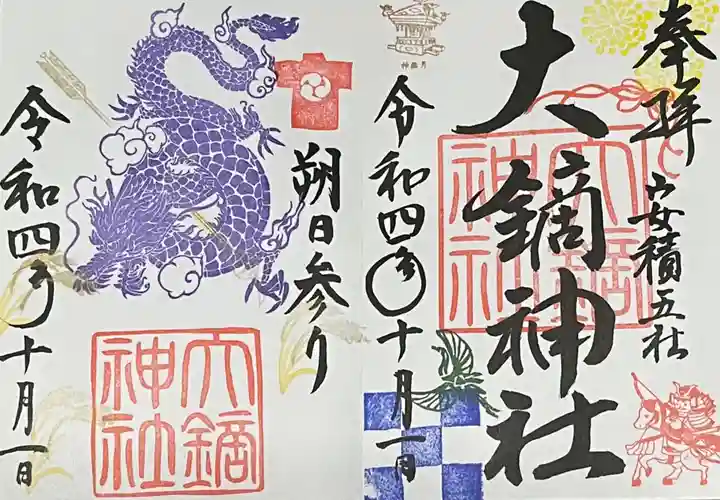 奉拝
安積五社
大鏑神社
大鏑神社
令和四年十月一日
神無月
朔日参り
令和四年十月一日
大鏑神社